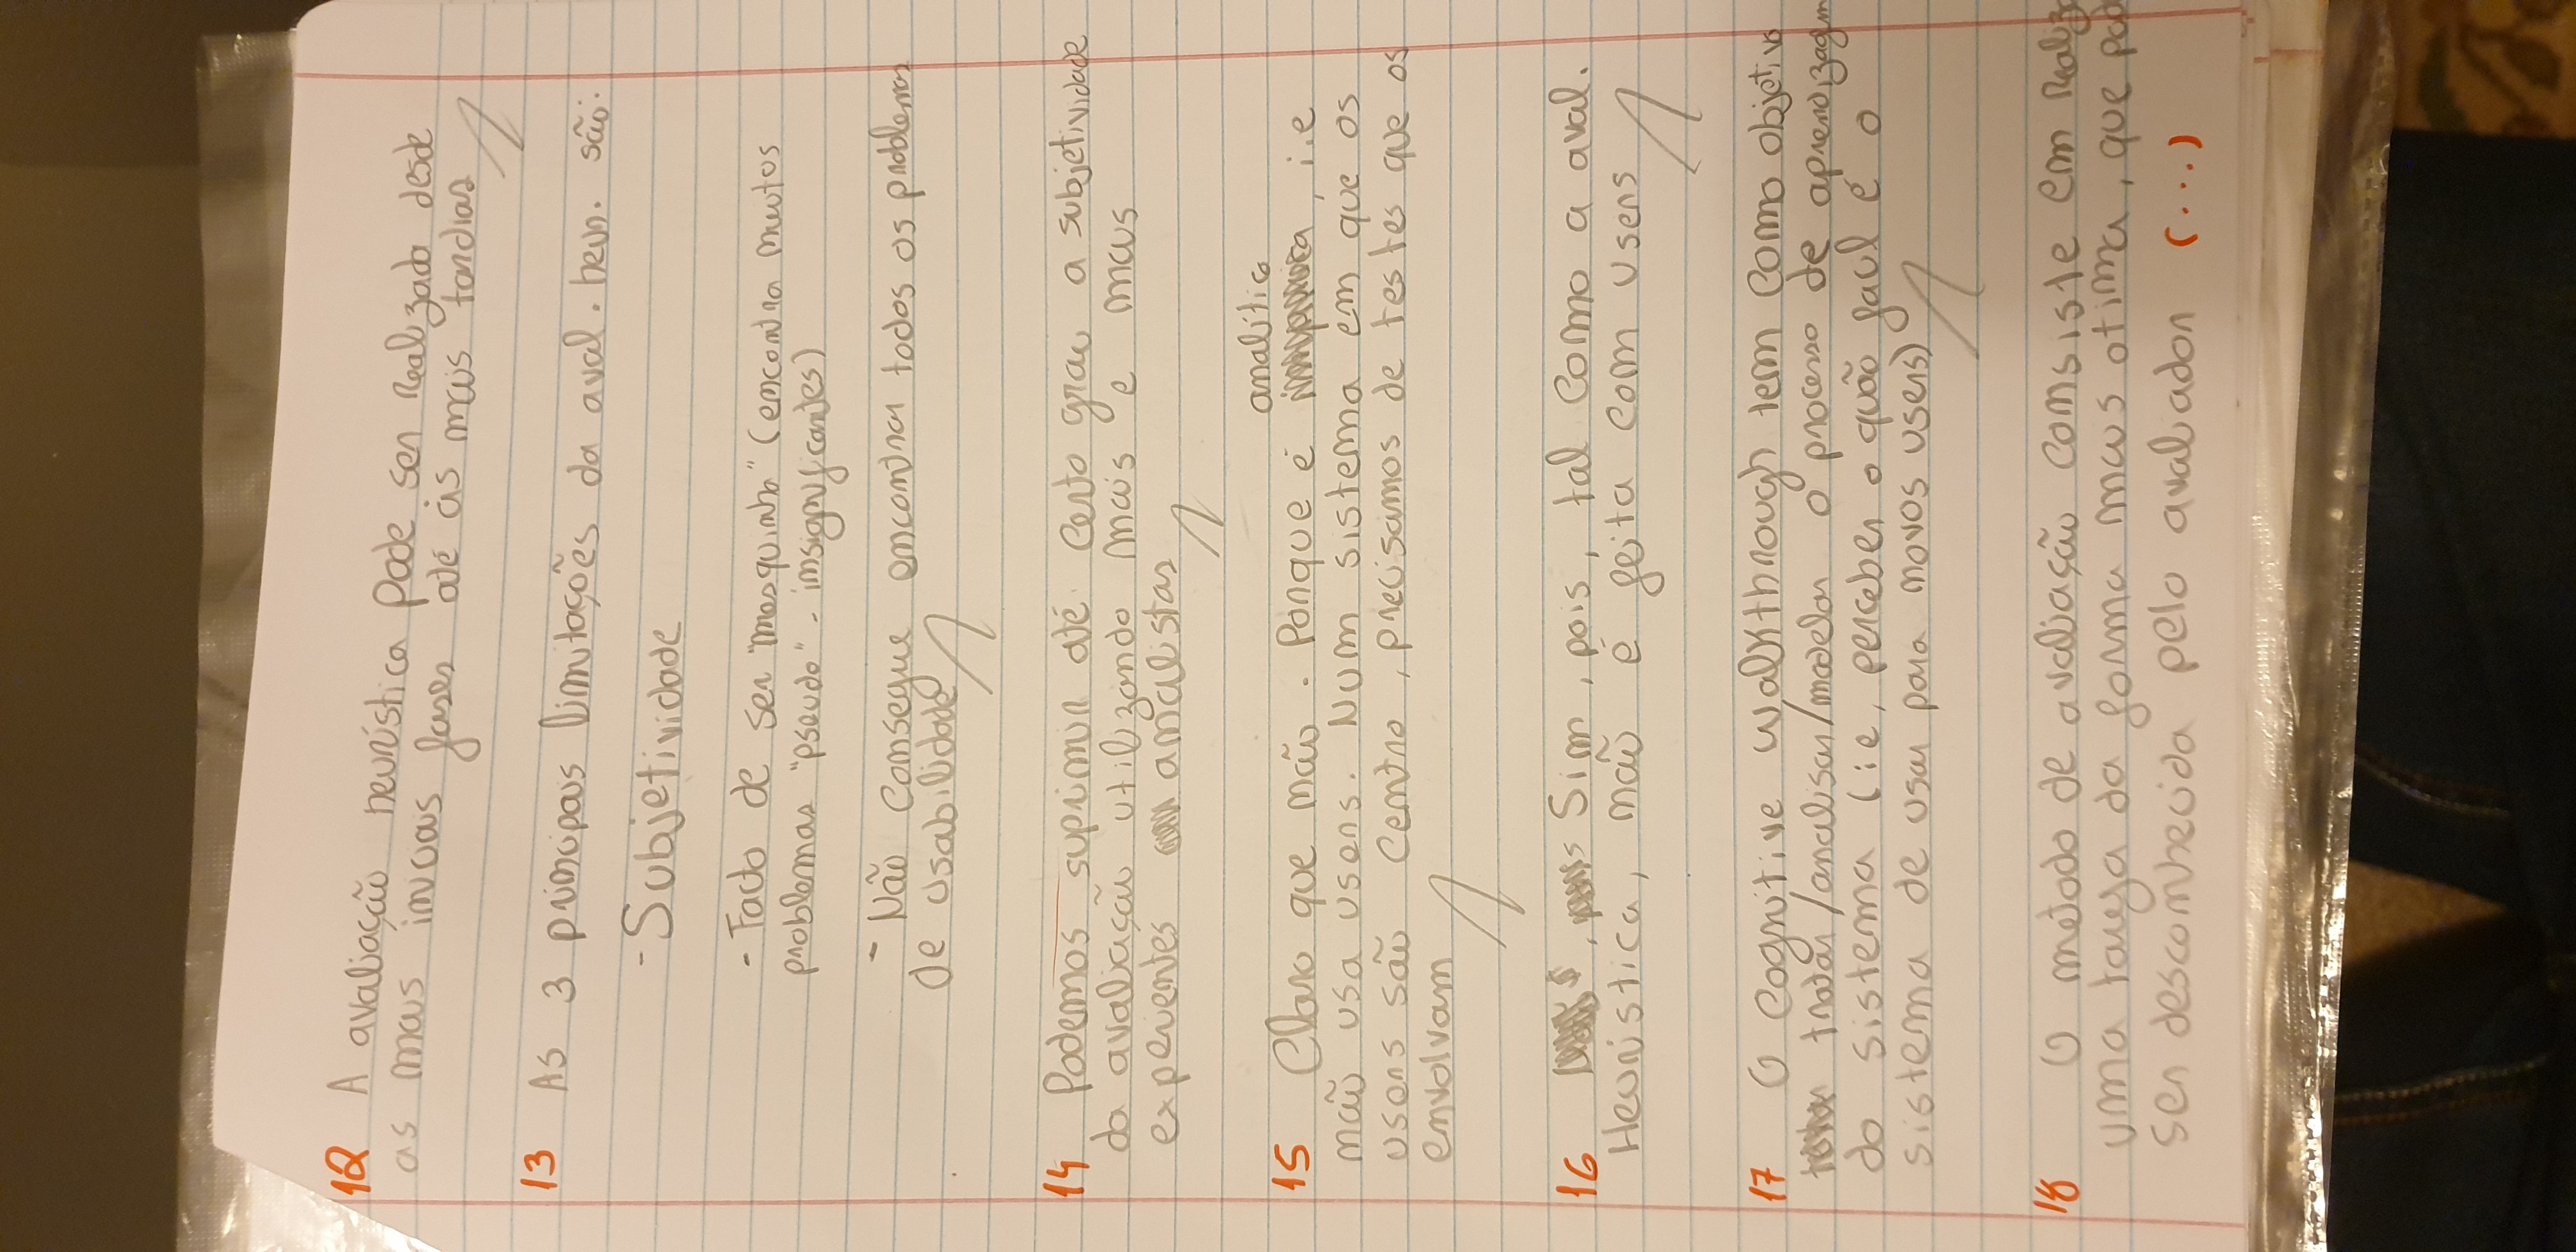 12 A avaliação heurística pode ser realizada desde
as mais iniciais fases até às mais tardias
13 As 3 principais limitações da aval. heur. são:
- Subjetividade
- Facto de ser "mesquinha" (encontra muitos
problemas "pseudo" - insignificantes)
- Não consegue encontrar todos os problemas
de usabilidade
14 Podemos suprimir até certo grau a subjetividade
da avaliação utilizando mais e mais
experientes analistas
analítica
15 Claro que não. Porque é , i.e
não usa users. Num sistema em que os
users são centro, precisamos de testes que os
envolvam
16 Sim, pois, tal como a aval.
Heurística, não é feita com users
17 O Cognitive walkthrough tem como objetivo
tratar/analisar/modelar o processo de aprendizagem
do sistema (ie, perceber o quão facil é o
sistema de usar para novos users)
18 O metodo de avaliação consiste em
uma tarefa da forma mais otima, que
ser desconhecida pelo avaliador (...)